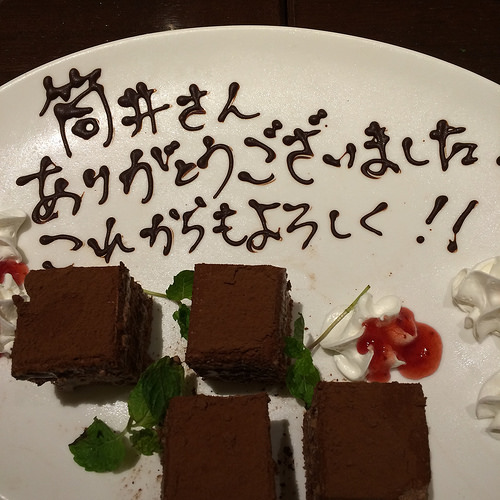 筒井さん
ありがとうございました。
これからもよろしく!!